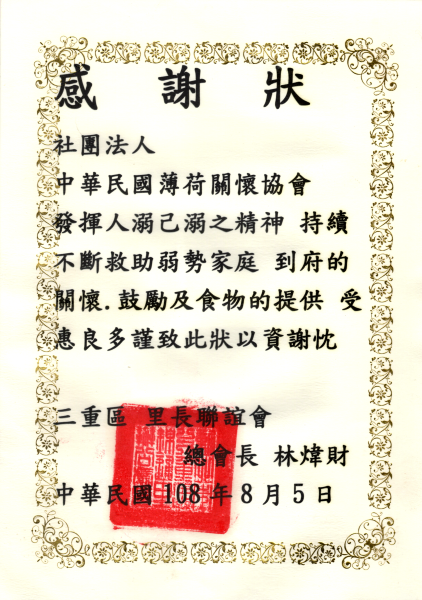 感謝狀
社團法人
中華民國薄荷關懷協會
發揮人溺己溺之精神 持續
不斷救助弱勢家庭 到府的
關懷.鼓勵及食物的提供 受
惠良多謹致此狀以資謝忱
三重區 里長聯誼會
總會長 林煒財
中華民國 108 年 8 月 5 日